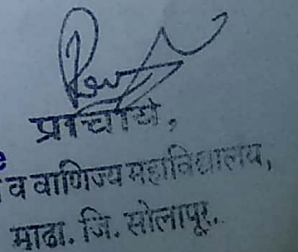 प्राचार्य,
व वाणिज्य महाविद्यालय,
माढा. जि. सोलापूर.